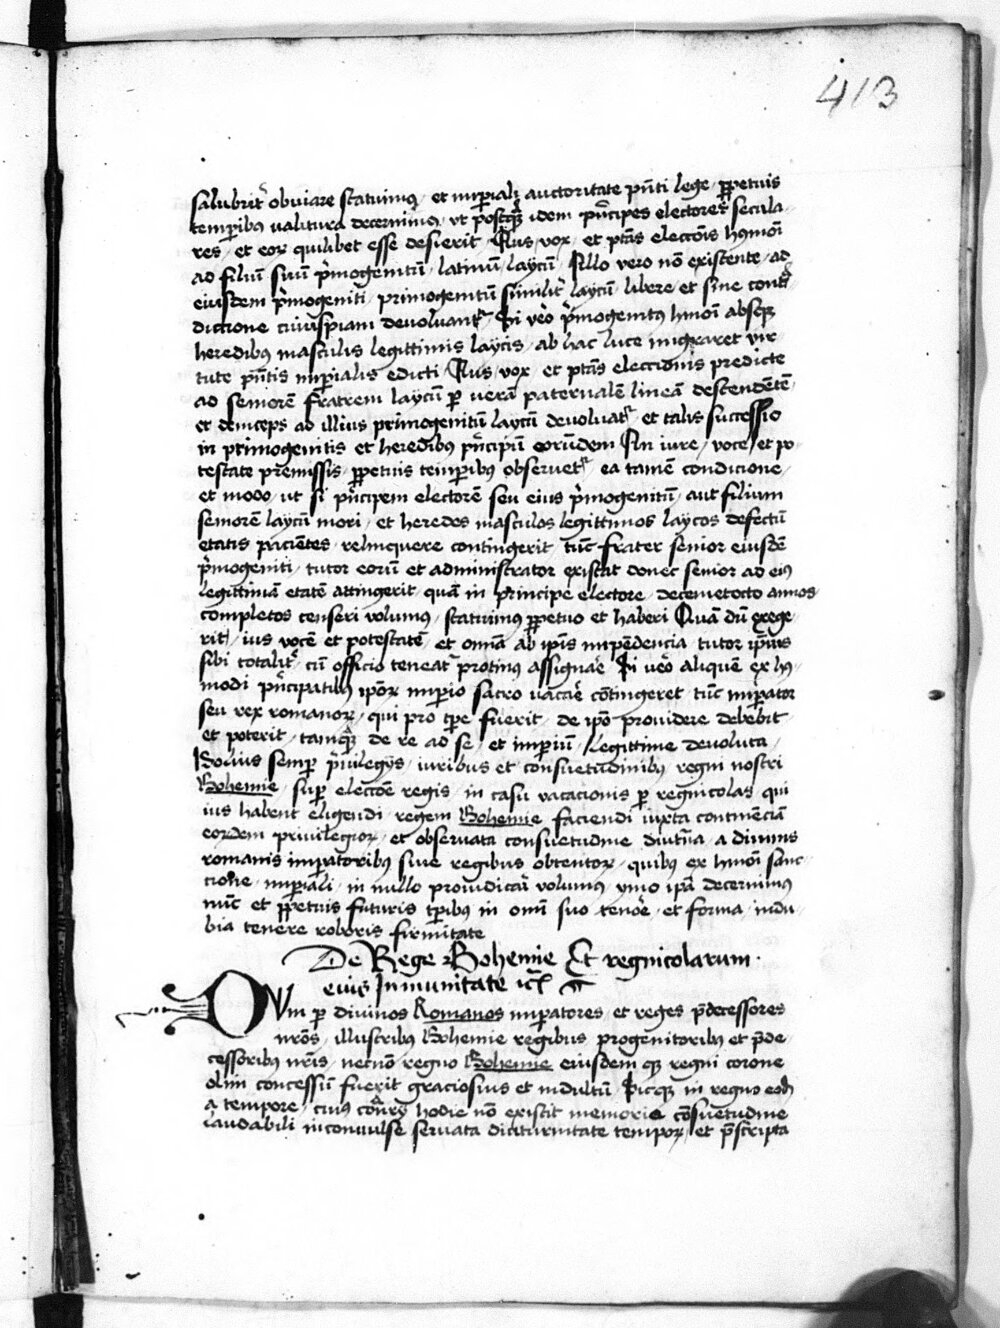 413
salubrit᷑ obuiare statuimus / et imꝑiali auctoritate pn̄ti lege ꝑpetuis
temꝑibus ualitura decernimus / ut postqȝ idem pn̄cipes electores secula-
res / et eoꝝ quilibet esse desierit / Ius / vox / et ptās eleccōis hmōi
ad filiū suū pͥmogenitū / latinū laycū / Illo vero nō existente / ad
eiusdem pͥmogeniti / primogenitū similit᷑ laycū libere et sine contͣ
dictione cuiuspiam devoluant᷑ Si ūo pͥmogenitus hmōi absqȝ
heredibus masculis legittimis laycis / ab hac luce migraret vir
tute pn̄tis imꝑialis edicti / Ius / vox / et ptās eleccionis predicte
ad seniorē fratrem laycū ꝑ verā paternalē lineā descendētē /
et deinceps ad illius primogenitū laycū devoluat᷑ / et talis successio
in primogenitis et heredibus pn̄cipū eorundem In iure / voce / et po-
testate premissis / ꝑpetuis temꝑibus obseruet᷑ / ea tamē condicione /
et modo / ut si pn̄cipem electorē seu eius pͥmogenitū / aut filium
seniorē laycū mori / et heredes masculos legittimos laycos defectū
etatis pacientes / relinquere contingerit / tūc frater senior eiusdē
pͥmogeniti / tutor eorū et administrator existat donec senior ad eius
legittimā etatē attingerit / quā in principe electore / decemetocto annos
completos censeri volumus / statuimus ꝑpetuo et haberi Quā dū exege-
rit / ius vocē et potestatē / et omīa ab ip̄is impēdencia / tutor ip̄ius
sibi totalit᷑ / cū officio teneat᷑ protinus assignare Si ūo aliquē ex hu-
modi pn̄cipatibus ip̄oꝝ imꝑio sacro uacare cōtingeret / tūc imꝑator
seu rex romanoꝝ / qui pro tꝑe fuerit / de ip̄o prouidere debebit
et poterit / tamqȝ de re ad se / et imꝑiū / legittime devoluta /
Saluis semꝑ pͥuilegijs / iuribus et consuetudinibus regni nostri
Bohemie / suꝑ eleccōe regis / in casu vacacionis ꝑ regnicolas qui
ius habent eligendi / regem Bohemie faciendi iuxta continēciā
eorūdem privilegioꝝ / et obseruata consuetudine diutina / a diuinis
romanis imꝑatoribus siue regibus obtentoꝝ / quibus ex hmōi sanc-
cione / imꝑiali / in nullo preiudicari volumus / ymo ip̄a decernimus
nūc et ꝑpetuis futuris tꝑibus in omī suo tenore / et forma / indu-
bia tenere roboris firmitate
De Rege Bohemie Et regnicolarum
eius Inmunitate
QVm ꝑ diuinos Romanos imꝑatores / et reges p̄decessores
nr̄os / illustribus Bohemie regibus progenitoribus et p̄de-
cessoribus nr̄is / necnō regno Bohemie eiusdem qȝ regni corone
olim concessū fuerit graciosius et indultū / Sitqȝ in regno eodē
a tempore / cuius cōtrarij hodie nō existit memorie cōsuetudine
laudabili inconuulse seruata diuturnitate tempoꝝ / et p̄scripta